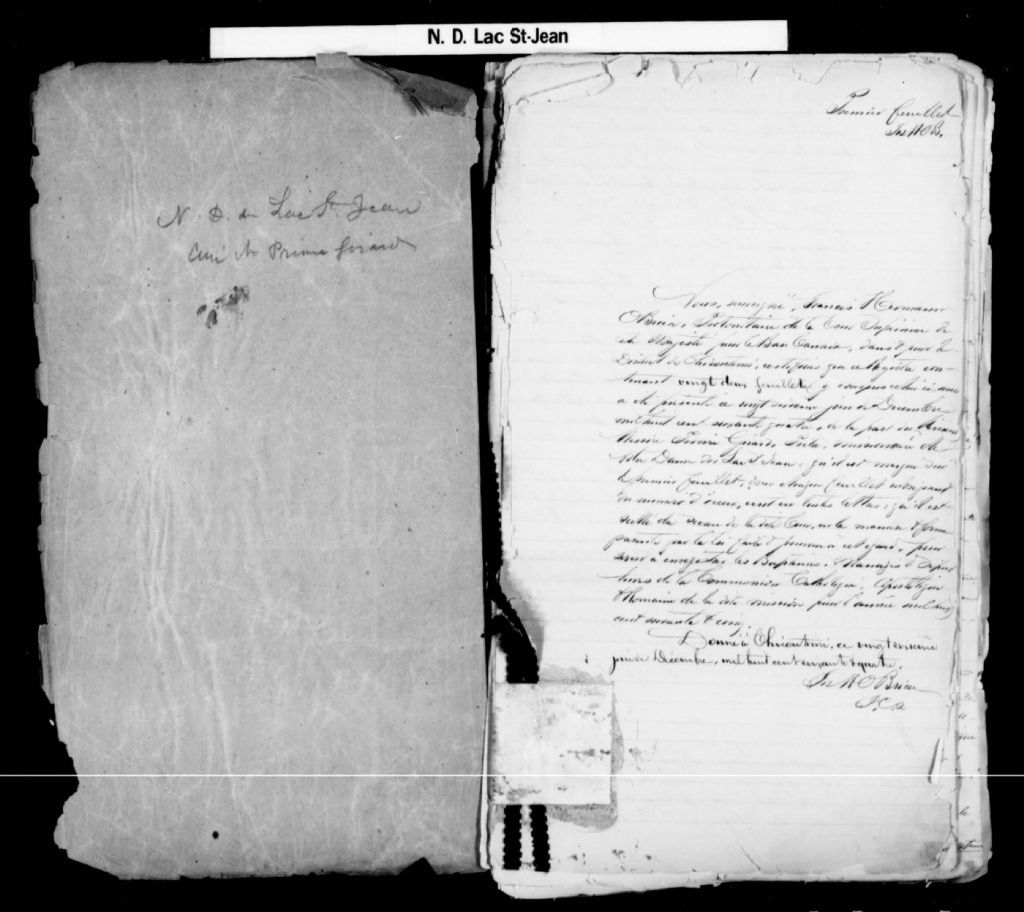 N. D. Lac St-Jean
N. D. du Lac St. Jean
Curé Mr Prime Girard
Premier feuillet
Nous, soussigné, Francis Hermann
O'Brien, Protonotaire de la Cour Supérieure de
Sa Majesté pour le Bas Canada, dans & pour le
District de Chicoutimi, certifions que ce Registre con-
tenant vingt deux feuillets, y compris celui ci,
a été présenté ce vingt jour de Décembre
mil huit cent soixante quatre, de la part du
Messire Prime Girard, Prêtre, missionnaire de
Notre Dame du Lac St Jean; qu'il est marqué sur
le premier feuillet, & sur chaque feuillet subséquent
du numéro d'icelui, écrit en toutes lettres; qu'il est
scellé du sceau de la dite Cour, en la manière & forme
par la loi faite & pourvue à cet égard, pour
servir à enregistrer les Baptêmes, Mariages & Sépul-
tures de la Communion Catholique, Apostolique
& Romaine de la dite mission pour l'année mil huit
cent soixante & cinq.
Donné à Chicoutimi, ce vingt
jour de Décembre, mil huit cent soixante & quatre.
O'Brien
P.C.S.